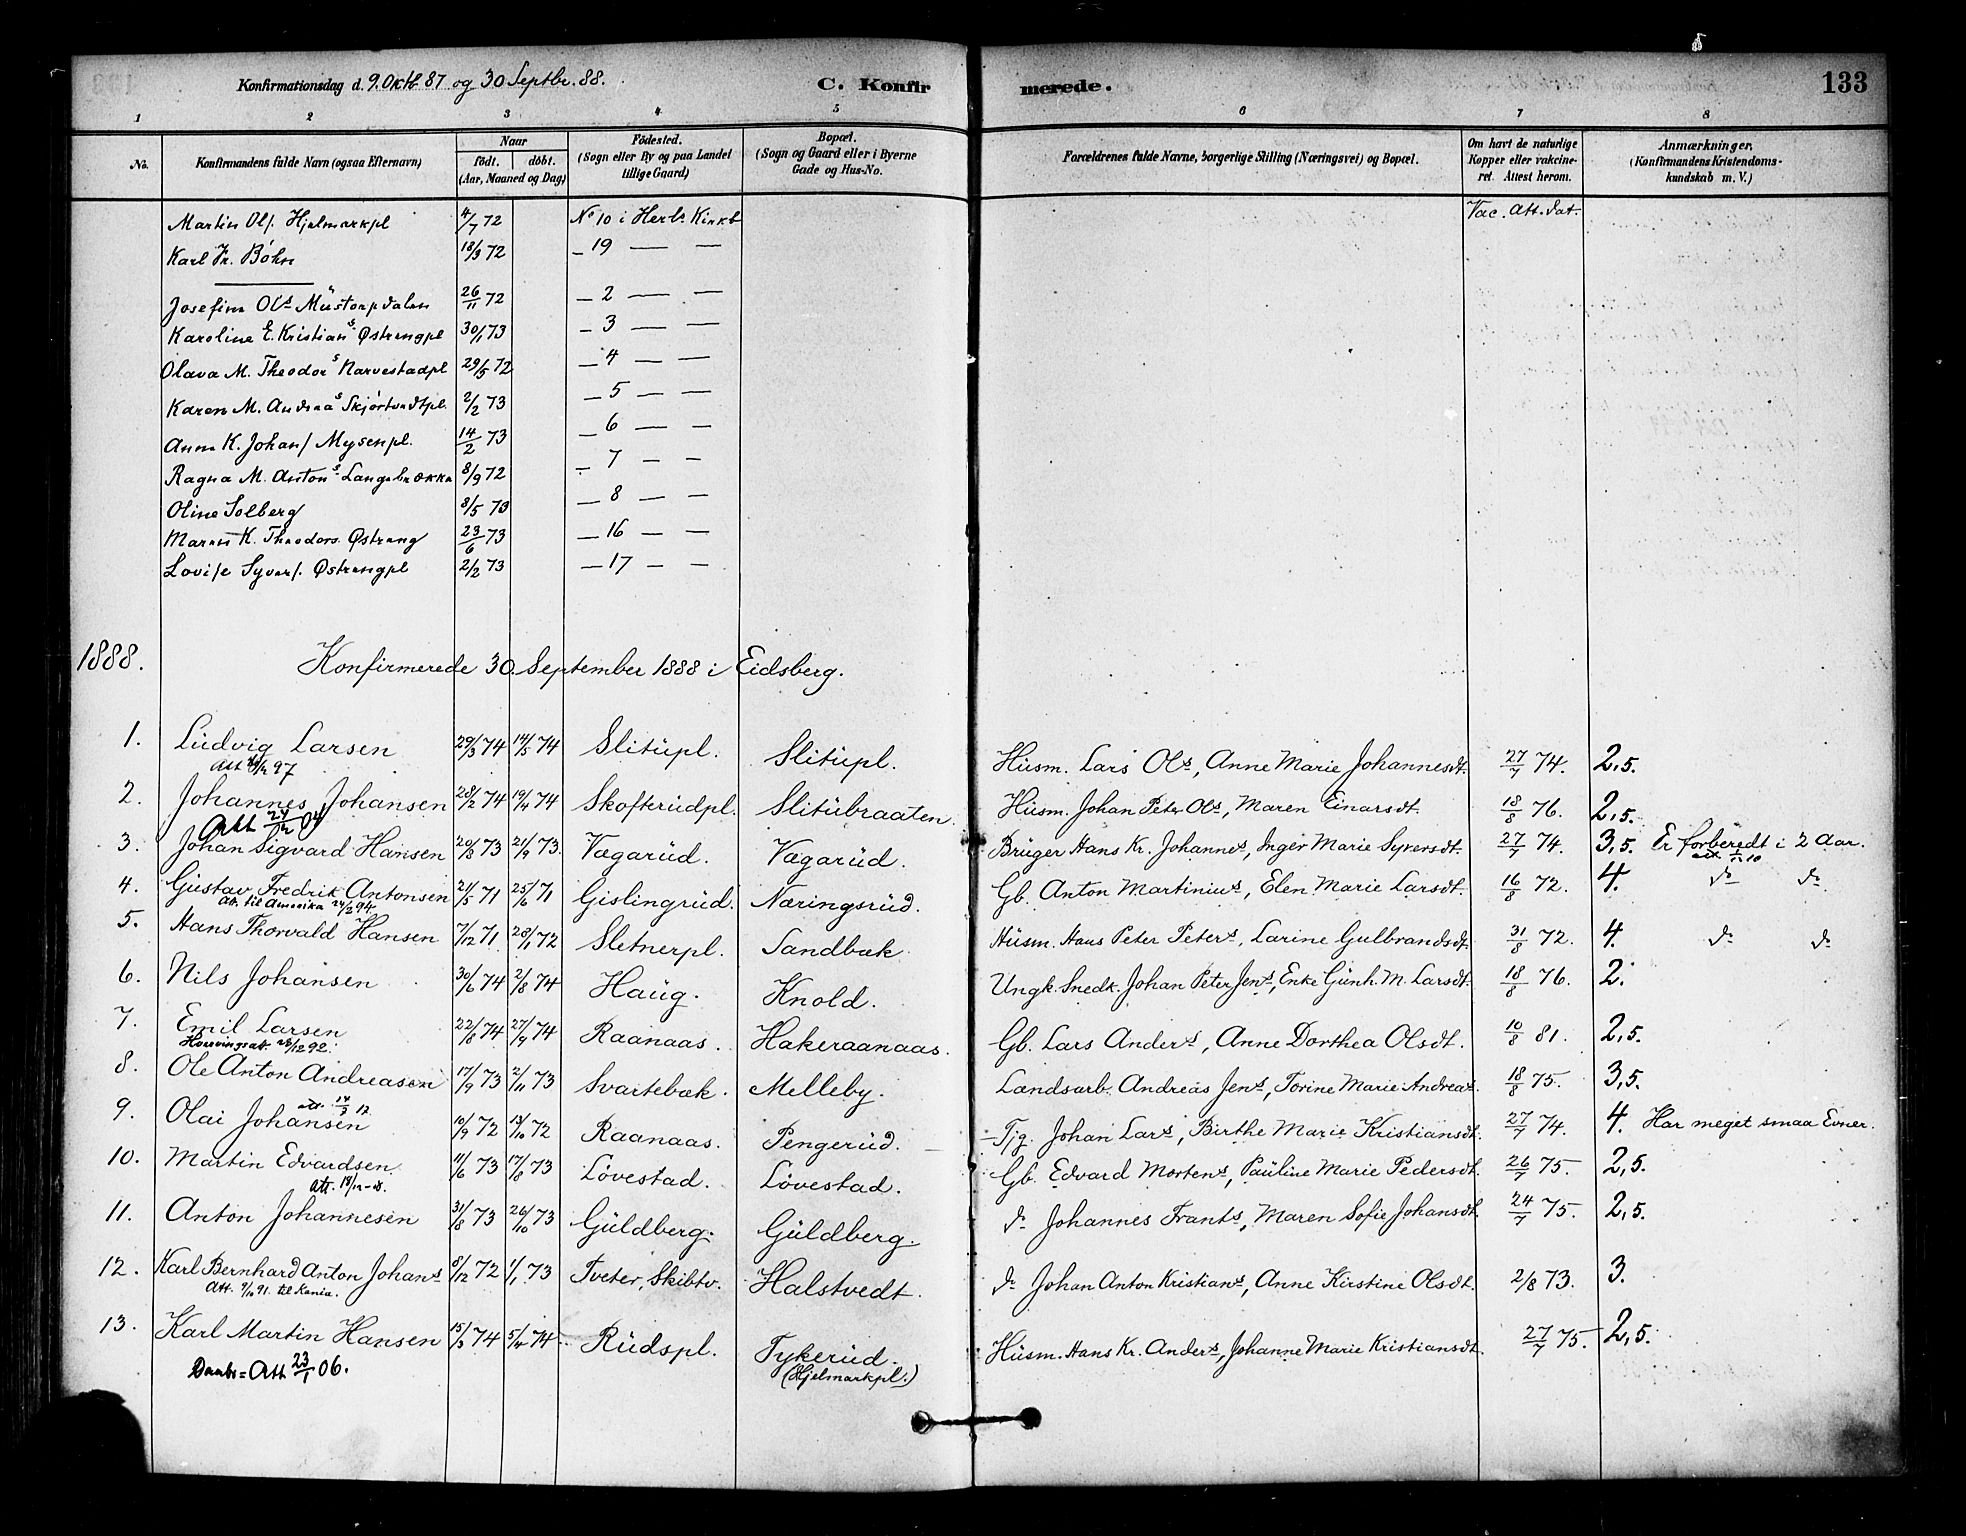 Konfirmationsdag d. 9. Oktb 87 og 30 Septbr. 88. C. Konfir merede. 133
1 2 3 4 5 6 7 8
No. Konfirmandens fulde Navn (ogsaa Efternavn) Naar født. døbt. (Aar, Maaned og Dag) Födested. (Sogn eller By og paa Landet tillige Gaard) Bopæl. (Sogn og Gaard eller i Byerne Gade og Hus-No. Forældrenes fulde Navne, borgerlige Stilling (Næringsvei) og Bopæl. Om havt de naturlige Kopper eller vakcineret. Attest herom. Anmærkninger. (Konfirmandens Kristendomskundskab m. V.)
Martin Ol/. Hjelmarkpl 4/7 72 No 10 i Herl. Kirkb Vac. Att. dat.
Karl Fr. Bøhn 18/3 72 — 19 — —
Josefine Ols Müstorpdalen 26/11 72 — 2 — —
Karoline E. Kristians Østrengpl 30/1 73 — 3 — —
Olava M. Theodors Narvestadpl 29/5 72 — 4 — —
Karen M. Andreas Skjørtvedtpl. 2/2 73 — 5 — —
Anna K. Johan/ Mysenpl. 14/2 73 — 6 — —
Ragna M. Antons Langebrække 8/9 72 — 7 — —
Oline Solberg 8/5 73 — 8 — —
Maren K. Theodors. Østreng 23/6 73 — 16 — —
Lovise Syver/. Østrengpl 2/2 73 — 17 — —
1888. Konfirmerede 30. September 1888 i Eidsberg.
1. Ludvig Larsen 29/3 74 14/5 74 Slitüpl. Slitüpl. Hüsm. Lars Ols, Anne Marie Johannesdt. 27/7 74. 2,5.
Att 97
2. Johannes Johansen 28/2 74 19/4 74 Skofterüdpl. Slitübraaten. Hüsm. Johan Peter Ols, Maren Einarsdt. 18/8 76. 2,5.
Att 24/12 04
3. Johan Sigvard Hansen 20/8 73 21/9 73. Vægarüd. Vægarüd. Brüger Hans Kr. Johannes, Inger Marie Syversdt. 27/7 74. 3,5. Er forberedt i 2 Aar.
4. Gustav Fredrik Antonsen 21/5 71 25/6 71 Gislingrüd. Næringsrüd. Gb. Anton Martinius, Elen Marie Larsdt. 16/8 72. 4. do do
Att. til Amerika 24/2 94
5. Hans Thorvald Hansen 7/12 71 28/1 72 Sletnerpl. Sandbæk. Hüsm. Hans Peter Peters, Larine Gulbrandsdt. 31/8 72. 4. do do
6. Nils Johansen 30/6 74 2/8 74 Haüg. Knold. Ungk. Snedk. Johan Peter Jens, Enke Günh. M. Larsdt. 18/8 76. 2.
7. Emil Larsen 22/8 74 27/9 74 Raanaas. Hakeraanaas. Gb. Lars Anders, Anne Dorthea Olsdt. 10/8 81. 2,5.
28/12 92.
8. Ole Anton Andreasen 17/9 73 2/11 73 Svartebæk. Melleby. Landsarb. Andreas Jens, Torine Marie Andreas 18/8 75. 3,5.
att. 14/3 12
9. Olai Johansen 10/9 72 13/10 72 Raanaas. Pengerüd. Tjg. Johan Lars, Birthe Marie Kristiansdt. 27/7 74. 4. Har meget smaa Evner.
10. Martin Edvardsen 11/6 73 17/8 73 Løvestad. Løvestad. Gb. Edvard Mortens, Pauline Marie Pedersdt. 26/7 75. 2,5.
Att.
11. Anton Johannesen 31/8 73 26/10 73 Güldberg. Güldberg. do Johannes Frants, Maren Sofie Johansdt. 24/7 75. 2,5.
12. Karl Bernhard Anton Johans 8/12 72 1/1 73 Tveter, Skibtv. Halstvedt. do Johan Anton Kristians, Anne Kirstine Olsdt. 2/8 73. 3.
Att. 9/10 91. til Kania.
13. Karl Martin Hansen 15/3 74 5/4 74 Rüdspl. Tykerüd. (Hjelmarkpl.) Hüsm. Hans Kr. Anders, Johanne Marie Kristiansdt. 27/7 75. 2,5.
Daabs=Att 23/1 06.